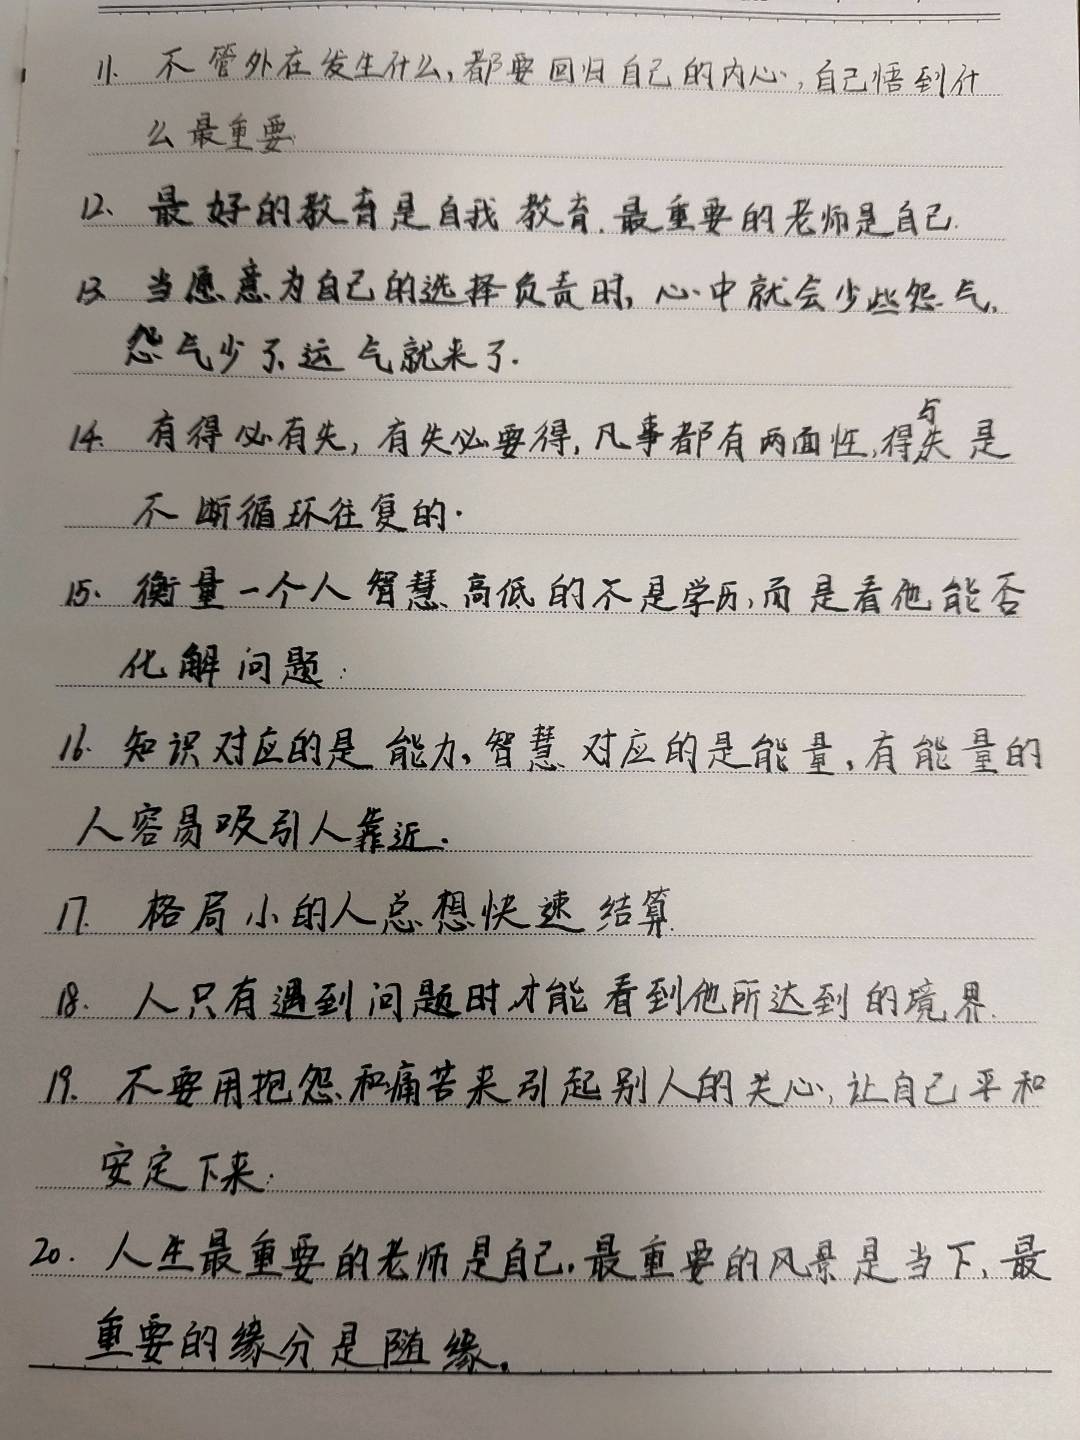 11. 不管外在发生什么,都要回归自己的内心,自己悟到什
么最重要
12. 最好的教育是自我教育.最重要的老师是自己.
13 当愿意为自己的选择负责时,心中就会少些怨气,
怨气少了,运气就来了.
14. 有得必有失,有失必要得,凡事都有两面性,得与失是
不断循环往复的.
15. 衡量一个人智慧高低的不是学历,而是看他能否
化解问题.
16. 知识对应的是能力,智慧对应的是能量,有能量的
人容易吸引人靠近.
17. 格局小的人总想快速结算.
18. 人只有遇到问题时才能看到他所达到的境界.
19. 不要用抱怨和痛苦来引起别人的关心,让自己平和
安定下来.
20. 人生最重要的老师是自己,最重要的风景是当下,最
重要的缘分是随缘.